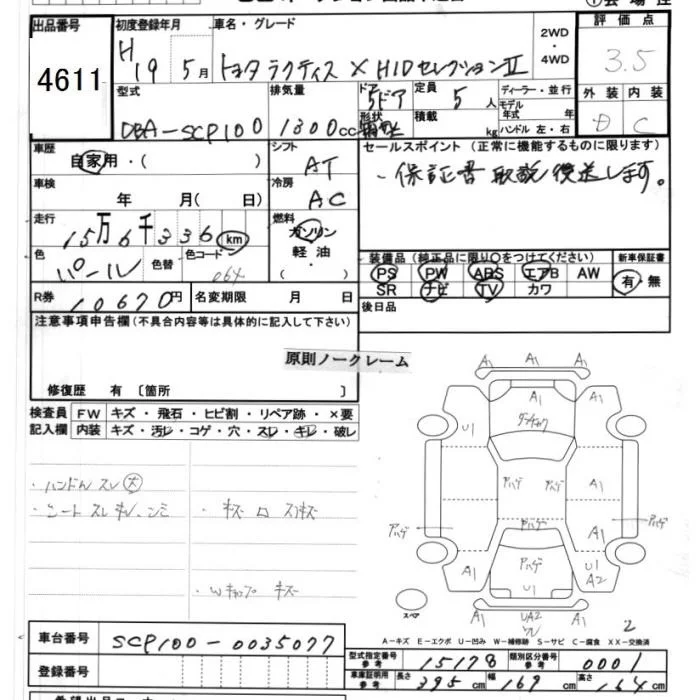 出品番号 4611
初度登録年月 H19 5月
車名・グレード トヨタ ラクティス X HIDセレクションⅡ
2WD・4WD
評価点 3.5
型式 DBA-SCP100
排気量 1300cc
ドア 5ドア
形状
定員 5人
積載 kg
ディーラー・並行
モデル年式 年
ハンドル 左・右
外装 内装
D C
車歴 自家用・( )
シフト AT
セールスポイント (正常に機能するものに限ります)
・保証書 取説 後送します。
車検 年 月( 日)
冷房 AC
走行 15万6千336km
燃料 ガソリン 軽油 ・( )
色 パール 色替 色コード 064
装備品 (純正品に限り○をつけてください) 新車保証書
PS PW ABS エアB AW
有・無
SR ナビ TV カワ
R券 10670円
名変期限 月 日
後日品
注意事項申告欄 (不具合内容等は具体的に記入して下さい)
原則ノークレーム
修復歴 有 〔箇所 〕
検査員記入欄
FW キズ・飛石・ヒビ割・リペア跡・×要
内装 キズ・汚レ・コゲ・穴・スレ・キレ・破レ
・ハンドル スレ 大
・シート スレ
・Wキャップ キズ
A1 A1 A1
A1 A1
U1
アハゲ アハゲ
A1
アハゲ
アハゲ A1 アハゲ
アハゲ
A1 U1 U1 A2
A1 UA2 A1
スペア
2
A-キズ E-エクボ U-凹み W-補修跡 S-サビ C-腐食 XX-交換済
車台番号 SCP100-0035077
型式指定番号 参考 15178
類別区分番号 参考 0001
登録番号
車庫証明用 参考 長さ 395cm 幅 169cm 高さ 164cm